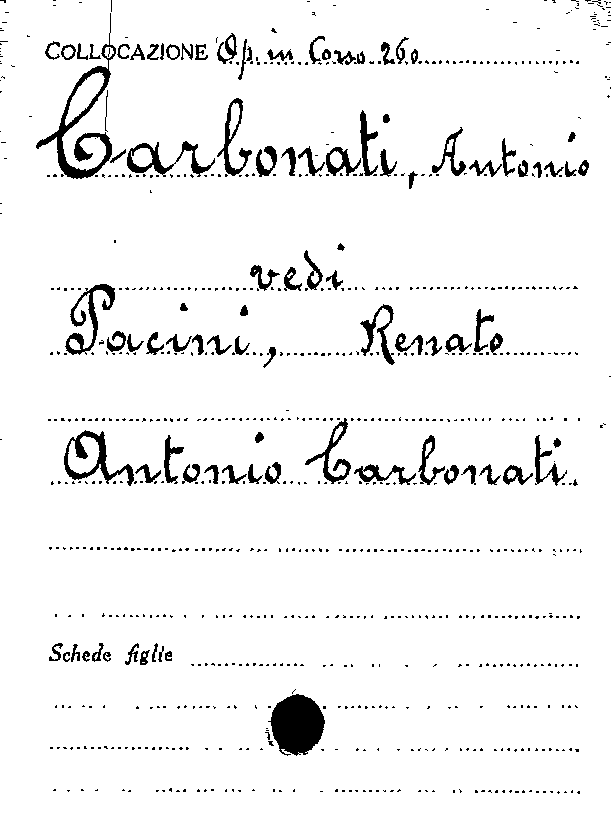 COLLOCAZIONE Op. in Corso 260
Carbonati, Antonio
vedi
Pacini, Renato
Antonio Carbonati.
Schede figlie